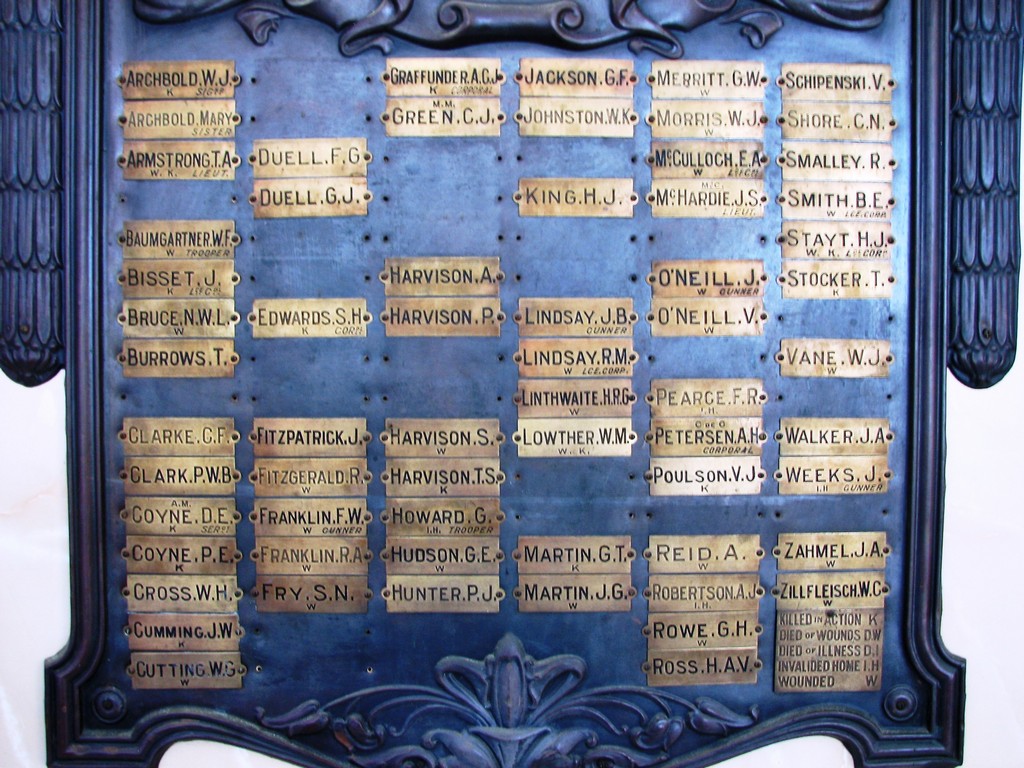 ARCHBOLD. W.J.
K SGT??
ARCHBOLD. MARY
SISTER
ARMSTRONG. T.A
W. K. LIEUT.
BAUMGARTNER. W.F
W TROOPER
BISSET. J.
K
BRUCE. N.W.L.
W
BURROWS. T.
CLARKE. C.F.
CLARK. P.W.B
A.M.
COYNE. D.E.
K SERGT
COYNE. P.E.
K
CROSS. W.H.
CUMMING. J.W
K
CUTTING. W.G
W
DUELL. F.G
DUELL. G.J.
EDWARDS. S.H
K CORPL
FITZPATRICK. J.
FITZGERALD. R.
FRANKLIN. F.W.
W GUNNER
FRANKLIN. R.A
FRY. S.N.
W
GRAFFUNDER. A.C.J
K CORPORAL
M.M.
GREEN. C.J.
HARVISON. A.
HARVISON. P.
HARVISON. S.
W
HARVISON. T.S
K
HOWARD. G.
I.H. TROOPER
HUDSON. G.E.
HUNTER. P.J.
JACKSON. G.F.
JOHNSTON. W.K
KING. H.J.
LINDSAY. J.B.
GUNNER
LINDSAY. R.M.
W LCE. CORP.
LINTHWAITE. H.R.G
W
LOWTHER. W.M.
W. K.
MARTIN. G.T.
K
MARTIN. J.G.
W
MERRITT. G.W.
W
MORRIS. W.J.
W
McCULLOCH. E.A
W
M.C.
McHARDIE. J.S.
LIEUT.
O'NEILL. J.
W GUNNER
O'NEILL. V.
W
PEARCE. F.R
I.H.
PETERSEN. A.H
CORPORAL
POULSON. V.J
K
REID. A.
W
ROBERTSON. A.J
I.H.
ROWE. G.H.
W
ROSS. H.A.V.
SCHIPENSKI. V.
SHORE. C.N.
SMALLEY. R.
SMITH. B.E.
W LCE. CORP.
STAYT. H.J.
W. K.
STOCKER. T.
K
VANE. W.J.
W
WALKER. J.A
WEEKS. J.
I.H GUNNER
ZAHMEL. J.A.
W
ZILLFLEISCH. W.C
KILLED IN ACTION K
DIED OF WOUNDS D.W
DIED OF ILLNESS D.I
INVALIDED HOME I.H
WOUNDED W